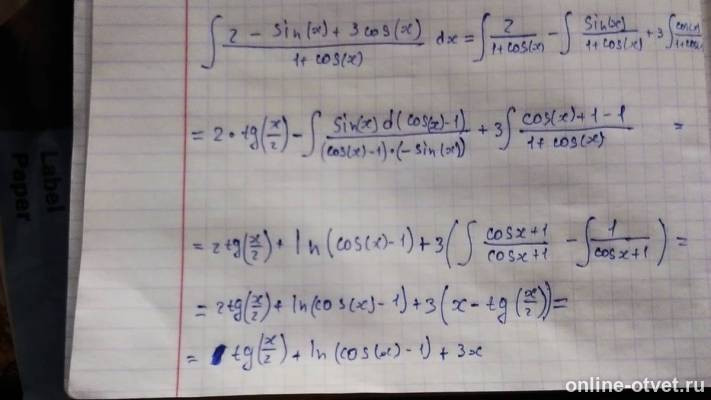 ∫ (2 - sin(x) + 3cos(x))/(1 + cos(x)) dx = ∫ 2/(1+cos(x)) - ∫ sin(x)/(1+cos(x)) + 3∫ cos(x)/(1+cos
= 2 · tg(x/2) - ∫ sin(x) d(cos(x)-1)/((cos(x)-1)·(-sin(x))) + 3∫ (cos(x)+1-1)/(1+cos(x)) =
= 2tg(x/2) + ln(cos(x)-1) + 3(∫ (cosx+1)/(cosx+1) - ∫ 1/(cosx+1)) =
= 2tg(x/2) + ln(cos(x)-1) + 3(x - tg(x/2)) =
= tg(x/2) + ln(cos(x)-1) + 3x
Label
Paper
online-otvet.ru